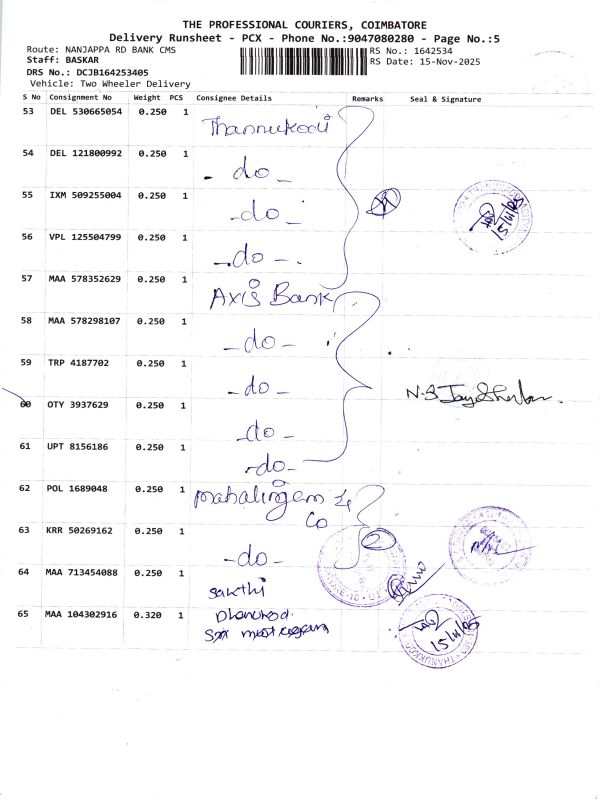 THE PROFESSIONAL COURIERS, COIMBATORE
Delivery Runsheet - PCX - Phone No.:9047080280 - Page No.:5
Route: NANJAPPA RD BANK CMS
RS No.: 1642534
Staff: BASKAR
RS Date: 15-Nov-2025
DRS No.: DCJB164253405
Vehicle: Two Wheeler Delivery
S No Consignment No Weight PCS Consignee Details Remarks Seal & Signature
53 DEL 530665054 0.250 1 Thannukodi
54 DEL 121800992 0.250 1 - do -
55 IXM 509255004 0.250 1 - do -
56 VPL 125504799 0.250 1 - do -
57 MAA 578352629 0.250 1 Axis Bank
58 MAA 578298107 0.250 1 - do -
59 TRP 4187702 0.250 1 - do -
60 OTY 3937629 0.250 1 - do -
61 UPT 8156186 0.250 1 - do -
62 POL 1689048 0.250 1 Mahalingam &
Co
63 KRR 50269162 0.250 1 - do -
64 MAA 713454088 0.250 1 Sakthi
65 MAA 104302916 0.320 1
15/11/25
15/11/25